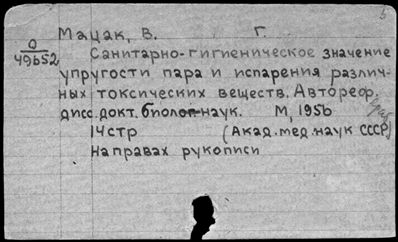 Мацак, В. Г.
О
49652
Санитарно-гигиеническое значение
упругости пара и испарения различ-
ных токсических веществ. Автореф.
дисс. докт. биолог наук. М, 1956
14стр (Акад. мед. наук СССР)
На правах рукописи